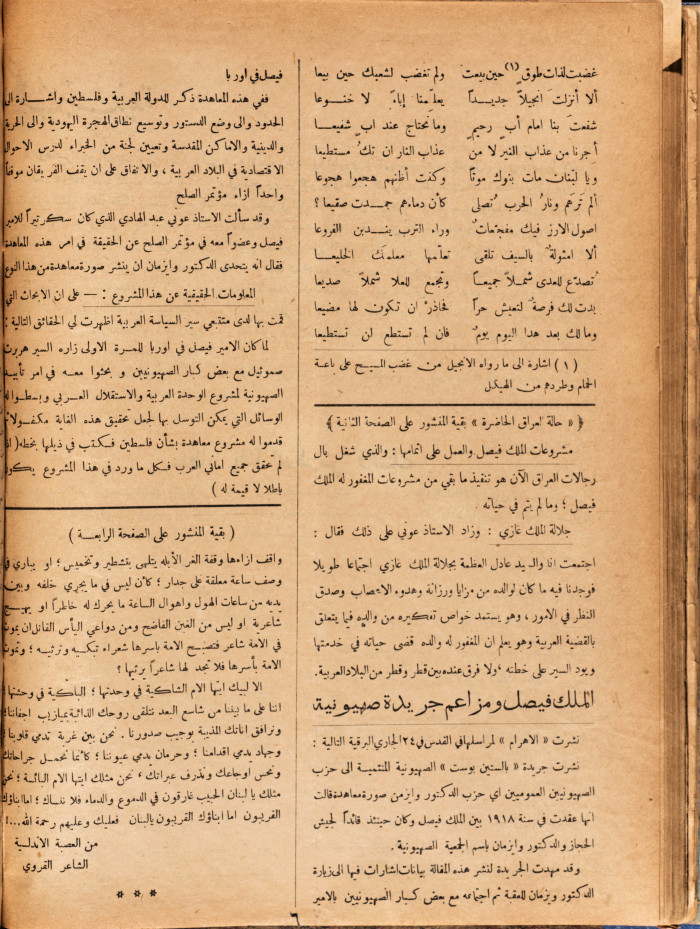 غضبت لذات طوق (١) حين بيعت ولم تغضب لشعبك حين بيعا
ألا أنزلت انجيلاً جديـــداً يعلمنا إباءً لا خنـــوعا
شفعتَ بنا امام أبٍ رحيمٍ وما نحتاج عند ابٍ شفيعـا
أجرنا من عذاب النير لا من عذاب النار ان تكُ مستطيعا
ويا لبنان مات بنوك موتاً وكنت أظنهم هجعوا هجوعا
ألم ترَهم ونارُ الحرب تُصلى كأن دماءهم جمـــدت صقيعا ؟
اصول الارز فيك مفجّعاتٌ وراء الترب ينـــدبن الفروعا
ألا امثولةٌ بالسيف تلقى تعلّمها معلمك الخليعـــا
تُصدّع للعدى شمـــلاً جميعـاً وتجمع للعلا شملاً صديعا
بدت لك فرصةٌ لتعيش حراً فحاذرْ ان تكون لها مضيعا
وما لك بعد هذا اليوم يومٌ فان لم تستطع لن تستطيعا
( ١ ) اشارة الى ما رواه الانجيل من غضب المسيح على باعة
الحمام وطردهم من الهيكل
﴿ « حالة العراق الحاضرة » بقية المنشور على الصفحة الثانية ﴾
مشروعات الملك فيصل والعمل على اتمامها : والذي شغل بال
رجالات العراق الآن هو تنفيذ ما بقي من مشروعات المغفور له الملك
فيصل ؛ وما لم يتم في حياته .
جلالة الملك غازي : وزاد الاستاذ عوني على ذلك فقال :
اجتمعت انا والسيد عادل العظمة بجلالة الملك غازي اجتماعا طويلا
فوجدنا فيه ما كان لوالده من مزايا ورزانة وهدوء الاعصاب وصدق
النظر في الامور ، وهو يستمد خواص تفكيره من والده فيما يتعلق
بالقضية العربية وهو يعلم ان المغفور له والده قضى حياته في خدمتها
ويود السير على خطته ، ولا فرق عنده بين قطر وقطر من البلاد العربية .
الملك فيصل ومزاعم جريدة صهيونية
نشرت « الاهرام » لمراسلها في القدس في ٢٤ الجاري البرقية التالية :
نشرت جريدة « بالستين بوست » الصهيونية المنتمية الى حزب
الصهيونيين العموميين اي حزب الدكتور وايزمن صورة معاهدة قالت
انها عقدت في سنة ١٩١٨ بين الملك فيصل وكان حينئذ قائداً لجيش
الحجاز والدكتور وايزمان باسم الجمعية الصهيونية .
وقد مهدت الجريدة لنشر هذه المقالة بيانات اشارات فيها الى زيارة
الدكتور ويزمان للعقبة ثم اجتماعه مع بعض كبار الصهيونيين بالامير
فيصل في اوربا
ففي هذه المعاهدة ذكر للدولة العربية وفلسطين واشـــارة الى
الحدود والى وضع الدستور وتوسيع نطاق الهجرة اليهودية والى الحرية
والدينية والاماكن المقدسة وتعيين لجنة من الخبراء لدرس الاحوال
الاقتصادية في البلاد العربية ، والاتفاق على ان يقف الفريقان موقفاً
واحداً ازاء مؤتمر الصلح
وقد سألت الاستاذ عوني عبد الهادي الذي كان سكرتيراً للامير
فيصل وعضواً معه في مؤتمر الصلح عن الحقيقة في امر هذه المعاهدة
فقال انه يتحدى الدكتور وايزمان ان ينشر صورة معاهدة من هذا النوع
المعلومات الحقيقية عن هذا المشروع : — على ان الابحاث التي
قمت بها لدى متتبعي سير السياسة العربية اظهرت لي الحقائق التالية :
لما كان الامير فيصل في اوربا للمــرة الاولى زاره السير هربرت
صموئيل مع بعض كبار الصهيونيين و بحثوا معـــه في امر تأييد
الصهيونية لمشروع الوحدة العربية والاستقلال العـــربي وبسطوا له
الوسائل التي يمكن التوسل بها لجعل تحقيق هذه الغاية مكفـــولا
قدموا له مشروع معاهدة بشأن فلسطين فكتب في ذيلها بخطه ( اذا
لم تحقق جميع اماني العرب فكل ما ورد في هذا المشروع يكون
باطلا لا قيمة له )
( بقية المنشور على الصفحة الرابعــة )
واقف ازاءها وقفة الغر الأبله يتلهى بتشطير وتخميس ؛ او يباري في
وصف ساعة معلقة على جدار ؛ كأن ليس في ما يجري خلفه وبين
يديه من ساعات الهول واهوال الساعة ما يحرك له خاطراً او يهيـــج
شاعرية او ليس من الغبن الفاضح ومن دواعي اليأس القاتل ان يموت
في الامة شاعر فتصبح الامة باسرها شعراء تبكيـه وترثيـه ؛ وتموت
الامة بأسرها فلا تجد لها شاعراً يرثيها ؟
الا لبيك ايتها الام الشاكية في وحدتها ؛ الباكية في وحشتها ؛
اننا على ما بيننا من شاسع البعد نتلقى روحك الذائبة بميازيب اجفاننا؛
ونرافق اناتك المذيبة بوجيب صدورنا . نحن بين غربة تدمي قلوبنا ؛
وجهاد يدمي اقدامنا ؛ وحرمان يدمي عيوننا ؛ كأنما نحمــل جراحاتك
ونحس اوجاعك ونذرف عبراتك . نحن مثلك ايتها الام البائسـة ؛ نحن
مثلك يا لبنان الحبيب غارقون في الدموع والدماء فلا ننساك ؛ اما ابناؤك
القريبون اما ابناؤك القريبون يا لبنان فعليك وعليهم رحمة الله...!
من العصبة الاندلسية
الشاعر القروي
* * *